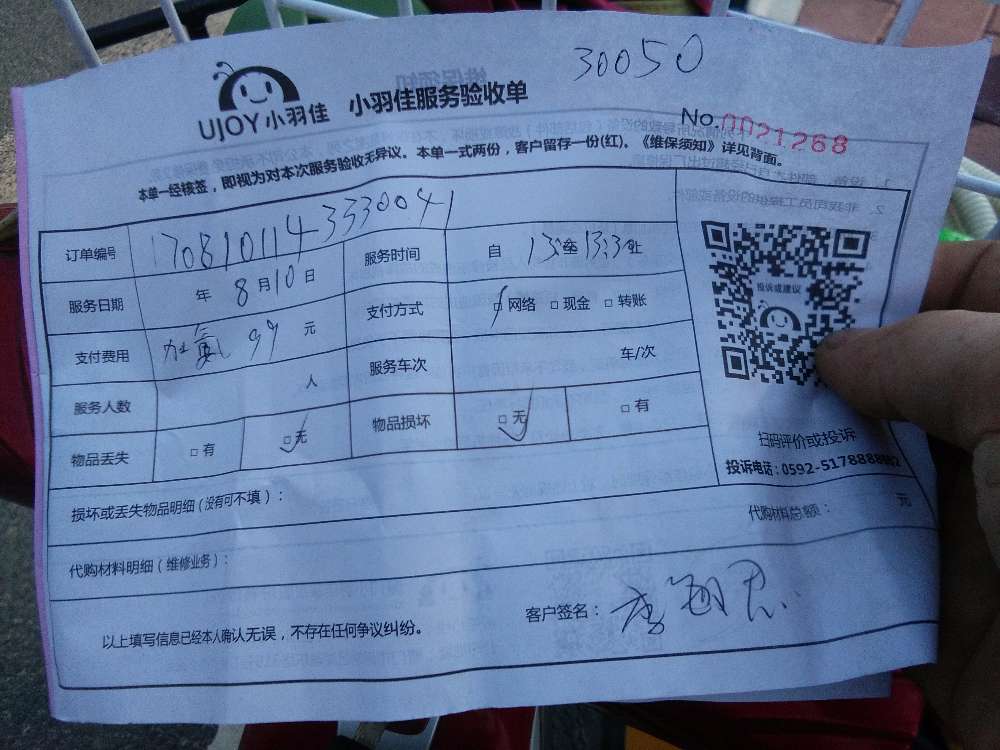 30050
UJOY 小羽佳 小羽佳服务验收单
No.0021268
本单一经核签，即视为对本次服务验收无异议。本单一式两份，客户留存一份(红)。《维保须知》详见背面。
订单编号 1708101143330041
服务日期 年 8月10日 服务时间 自 13 至 13:3 止
支付费用 加氟 99 元 支付方式 □网络 □现金 □转账
服务人数 人 服务车次 车/次
物品丢失 □有 □无 物品损坏 □无 □有
投诉或建议
扫码评价或投诉
投诉电话：0592-5178888
损坏或丢失物品明细（没有可不填）：
代购材料明细（维修业务）： 代购材料总额： 元
以上填写信息已经本人确认无误，不存在任何争议纠纷。 客户签名：